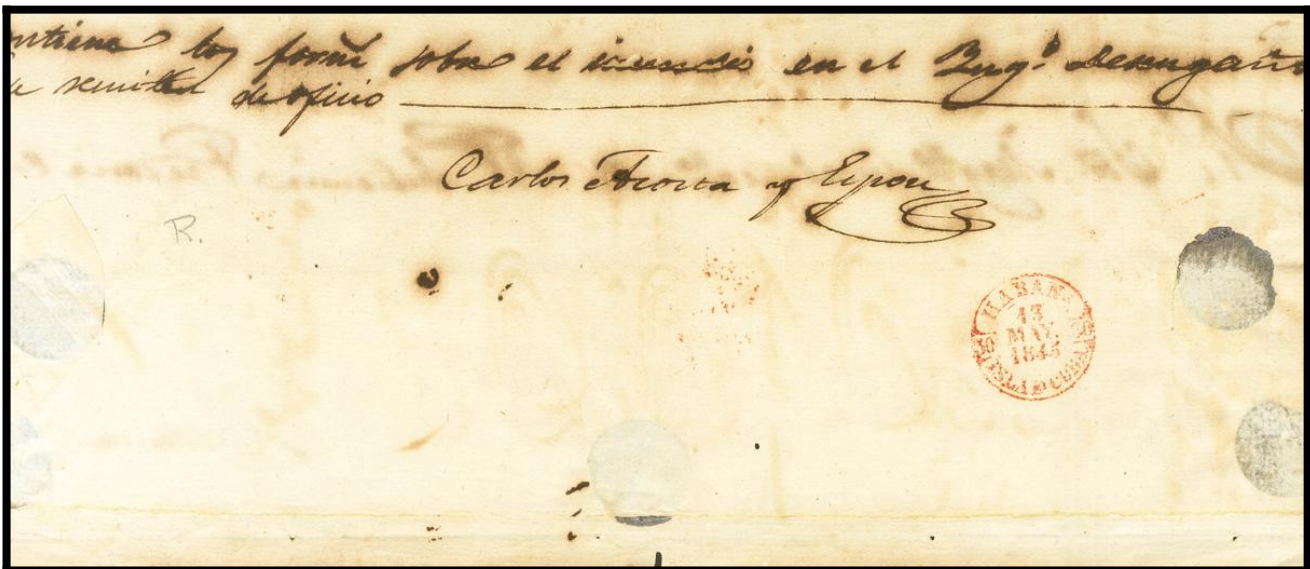 ntiene los formº sobre el incendio en el Yngº Desengaño
se remiten de oficio
Carlos y
R.
HABANA
13
MAY.
1845
ISLA D CUBA